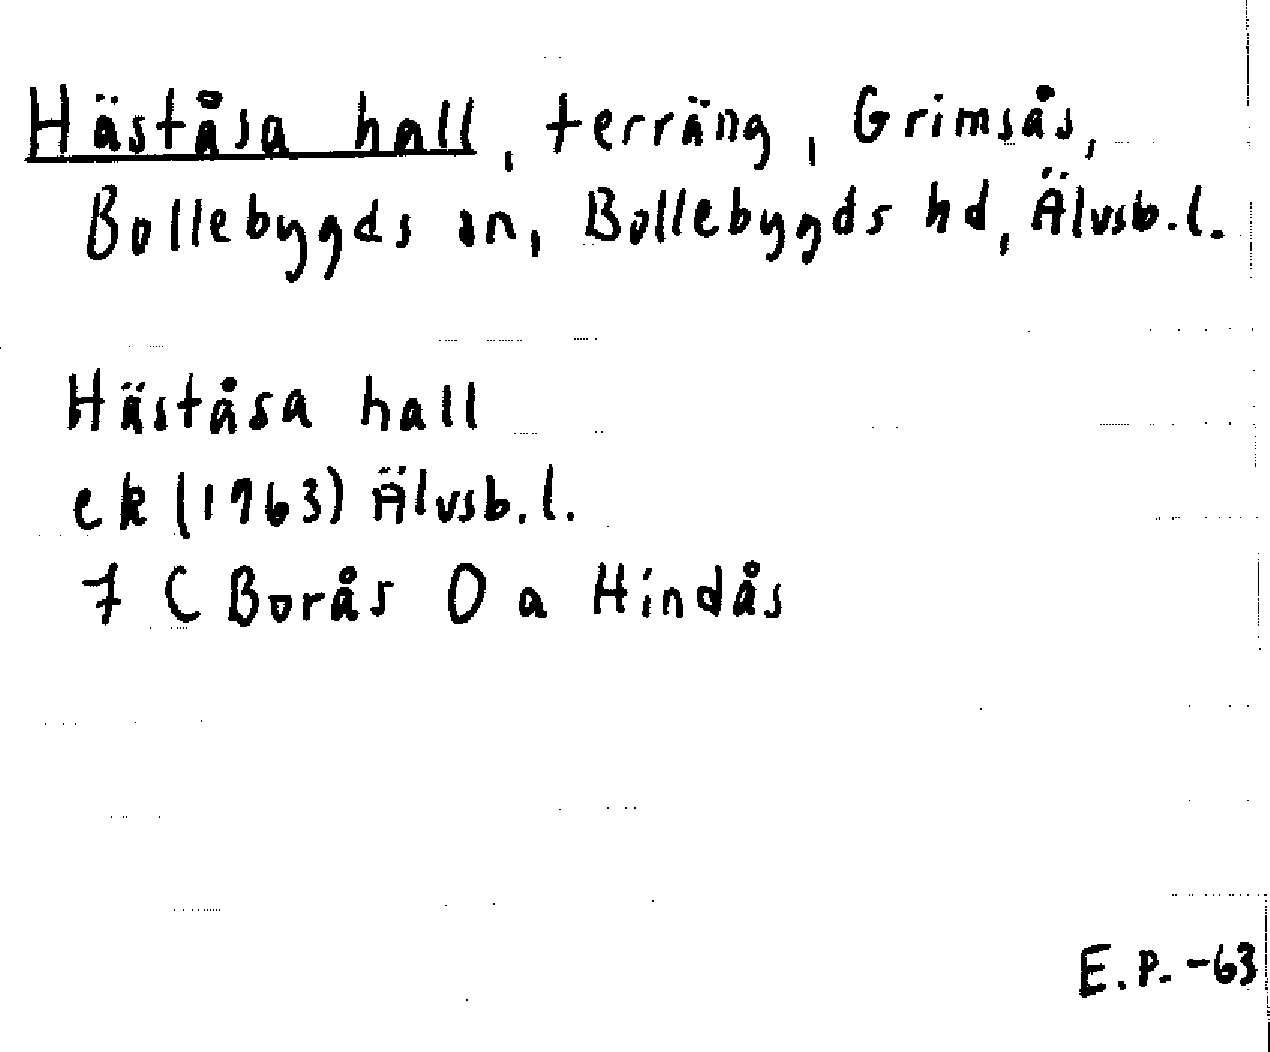 Häståsa hall, terräng, Grimsås,
Bollebygds sn, Bollebygds hd, Älvsb.l.
Häståsa hall
ek (1963) Älvsb.l.
7 C Borås O a Hindås
E.P. -63